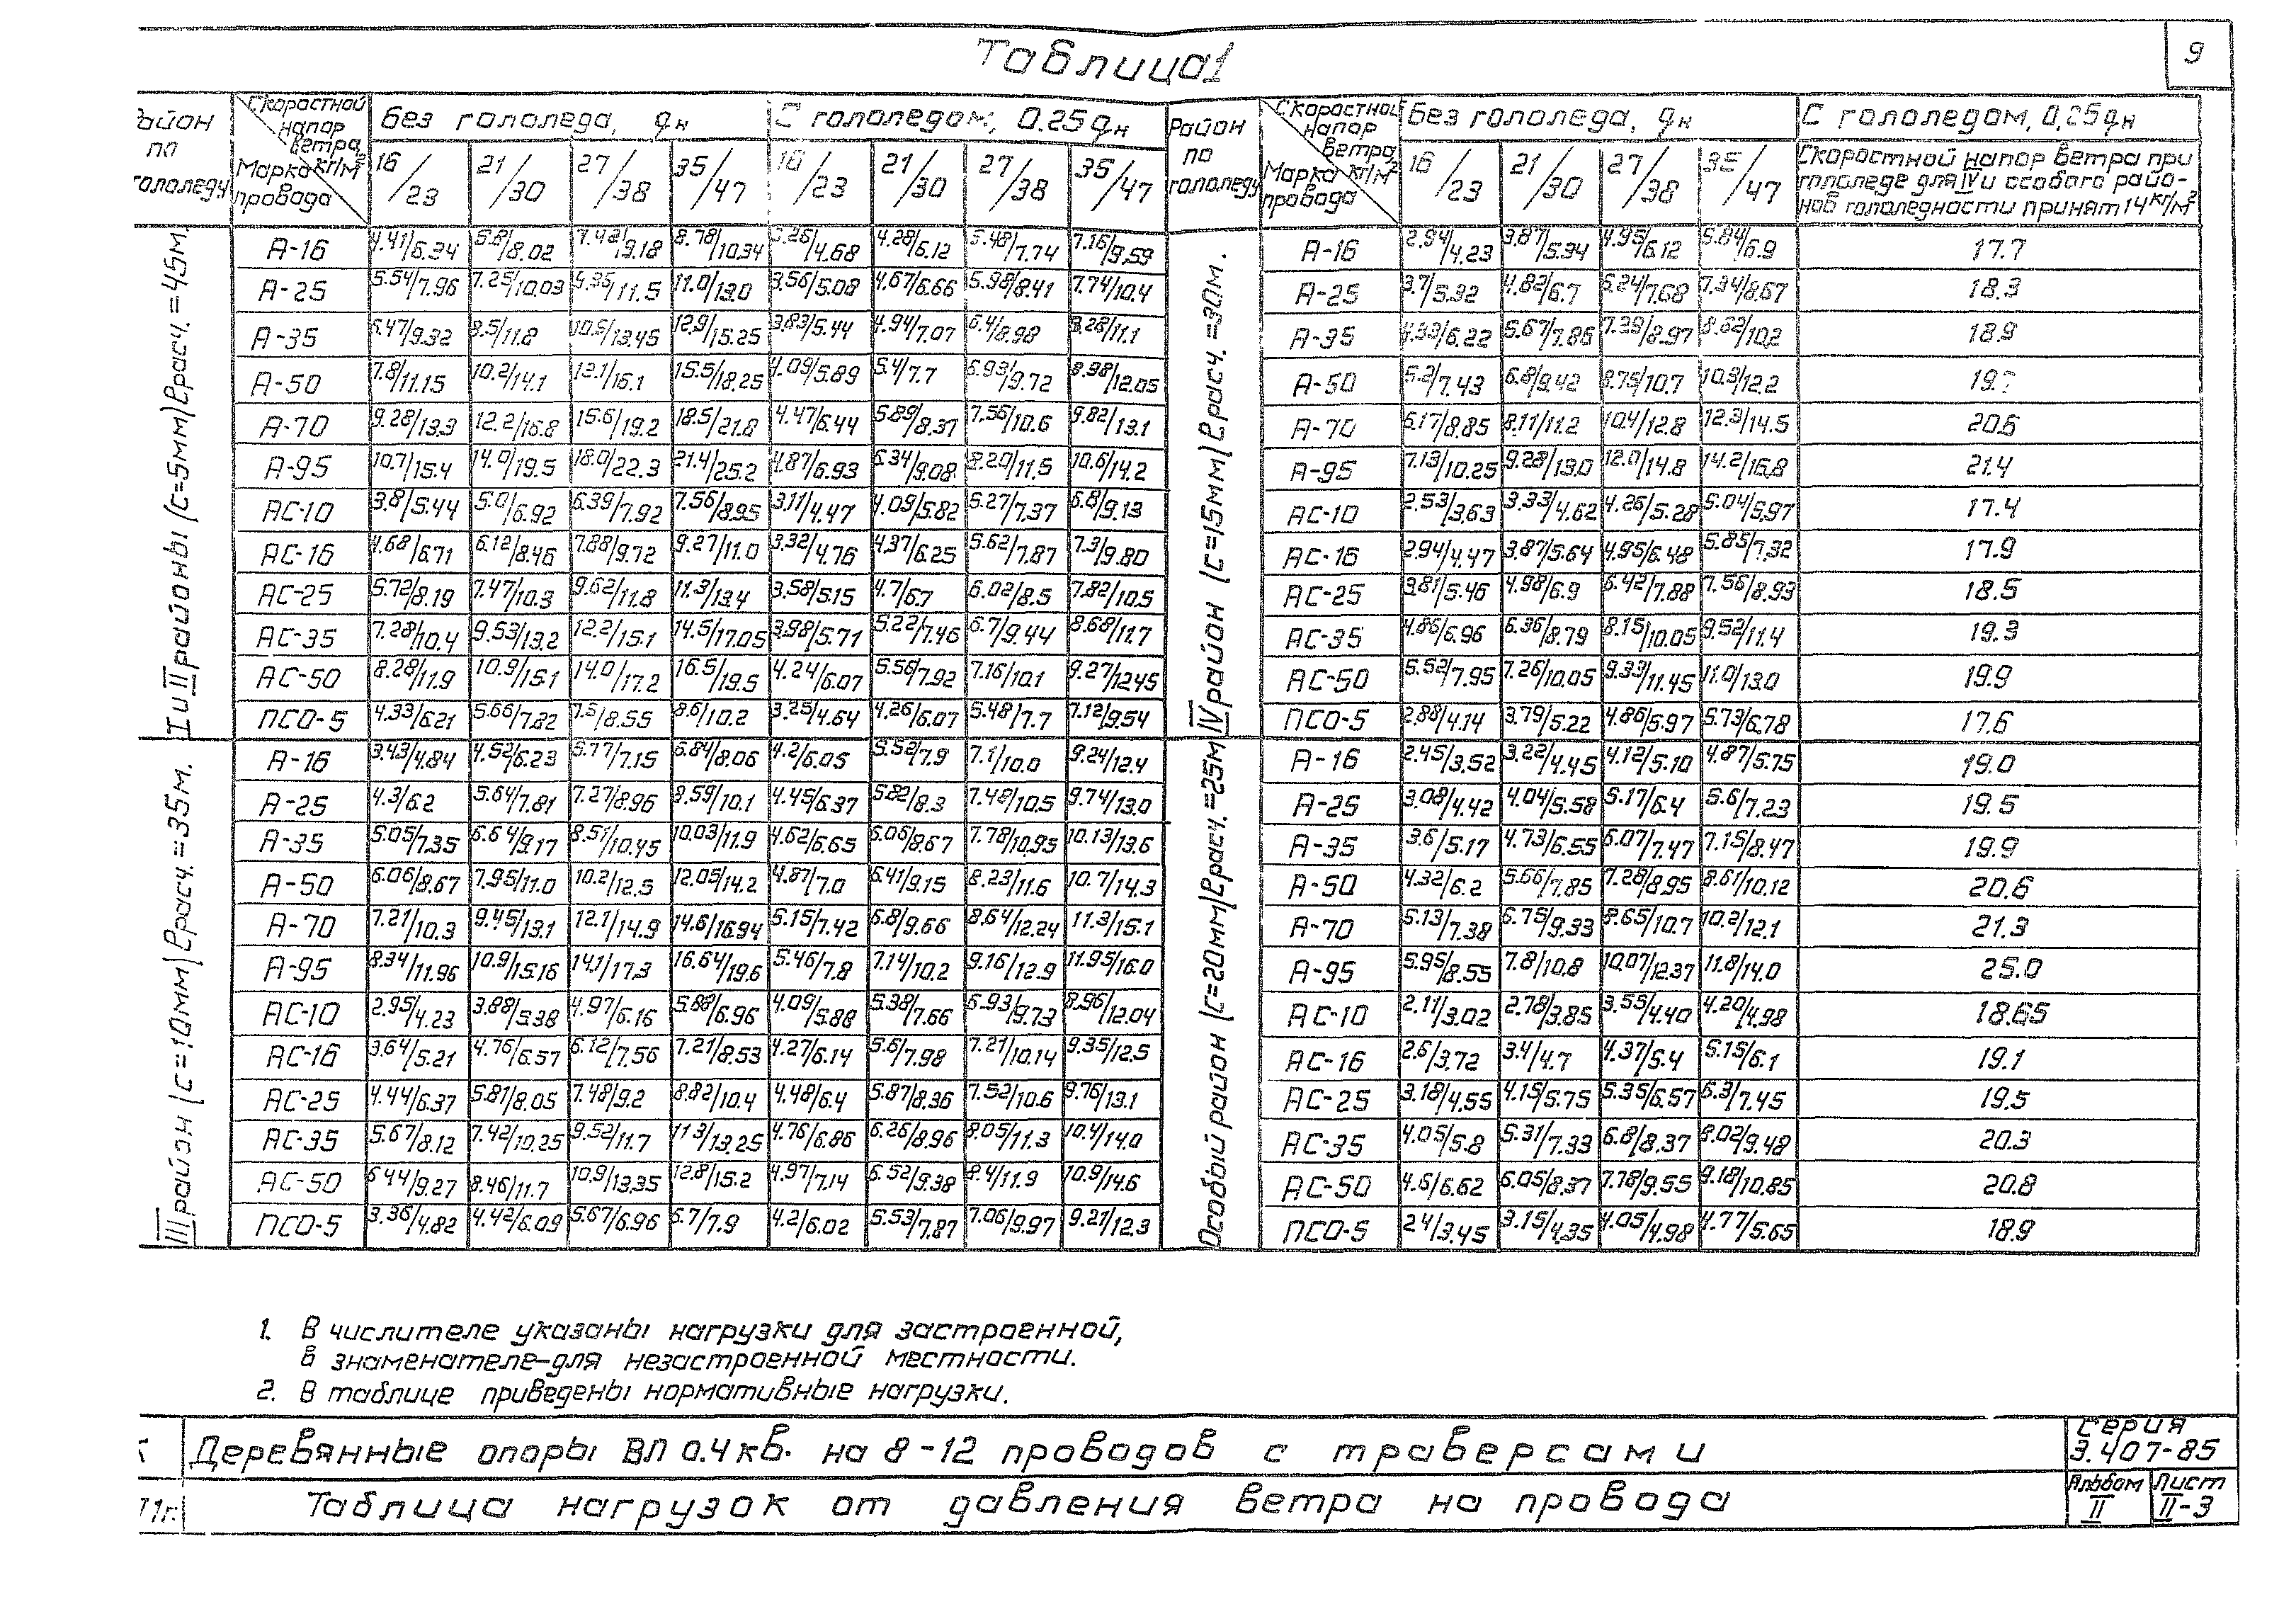 9
Таблица 1
Район по гололеду | Скоростной напор ветра, кг/м² Марка провода | Без гололеда, qн | С гололедом, 0.25 qн | Район по гололеду | Скоростной напор ветра, кг/м² Марка провода | Без гололеда, qн | С гололедом, 0,25 qн
16/23 | 21/30 | 27/38 | 35/47 | 16/23 | 21/30 | 27/38 | 35/47 | 16/23 | 21/30 | 27/38 | 35/47 | Скоростной напор ветра при гололеде для IV и особого районов гололедности принят 14 кг/м²
I и II районы (c=5мм) ℓрасч.=45м.
IV район (c=15мм) ℓрасч.=30м.
А-16 | 4.41/6.34 | 5.8/8.02 | 7.42/9.18 | 8.78/10.34 | 3.26/4.68 | 4.28/6.12 | 5.48/7.74 | 7.16/9.59 | А-16 | 2.94/4.23 | 3.87/5.34 | 4.95/6.12 | 5.84/6.9 | 17.7
А-25 | 5.54/7.96 | 7.25/10.03 | 9.35/11.5 | 11.0/13.0 | 3.56/5.08 | 4.67/6.66 | 5.98/8.41 | 7.74/10.4 | А-25 | 3.7/5.32 | 4.82/6.7 | 6.24/7.68 | 7.34/8.67 | 18.3
А-35 | 6.47/9.32 | 8.5/11.8 | 10.9/13.45 | 12.9/15.25 | 3.83/5.44 | 4.94/7.07 | 6.4/8.98 | 8.28/11.1 | А-35 | 4.33/6.22 | 5.67/7.86 | 7.29/8.97 | 8.62/10.2 | 18.9
А-50 | 7.8/11.15 | 10.2/14.1 | 13.1/16.1 | 15.5/18.25 | 4.09/5.89 | 5.4/7.7 | 6.93/9.72 | 8.98/12.05 | А-50 | 5.2/7.43 | 6.8/9.42 | 8.75/10.7 | 10.3/12.2
А-70 | 9.28/13.3 | 12.2/16.8 | 15.6/19.2 | 18.5/21.8 | 4.47/6.44 | 5.89/8.37 | 7.56/10.6 | 9.82/13.1 | А-70 | 6.17/8.85 | 8.11/11.2 | 10.4/12.8 | 12.3/14.5 | 20.6
А-95 | 10.7/15.4 | 14.0/19.5 | 18.0/22.3 | 21.4/25.2 | 4.87/6.93 | 6.34/9.08 | 8.20/11.5 | 10.6/14.2 | А-95 | 7.13/10.25 | 9.28/13.0 | 12.0/14.8 | 14.2/16.8 | 21.4
АС-10 | 3.8/5.44 | 5.0/6.92 | 6.39/7.92 | 7.56/8.95 | 3.11/4.47 | 4.09/5.82 | 5.27/7.37 | 6.8/9.13 | АС-10 | 2.53/3.63 | 3.33/4.62 | 4.26/5.28 | 5.04/5.97 | 17.4
АС-16 | 4.68/6.71 | 6.12/8.46 | 7.88/9.72 | 9.27/11.0 | 3.32/4.76 | 4.37/6.25 | 5.62/7.87 | 7.3/9.80 | АС-16 | 2.94/4.47 | 3.87/5.64 | 4.95/6.48 | 5.85/7.32 | 17.9
АС-25 | 5.72/8.19 | 7.47/10.3 | 9.62/11.8 | 11.3/13.4 | 3.58/5.15 | 4.7/6.7 | 6.02/8.5 | 7.82/10.5 | АС-25 | 3.81/5.46 | 4.98/6.9 | 6.42/7.88 | 7.56/8.93 | 18.5
АС-35 | 7.28/10.4 | 9.53/13.2 | 12.2/15.1 | 14.5/17.05 | 3.98/5.71 | 5.22/7.46 | 6.7/9.44 | 8.68/11.7 | АС-35 | 4.86/6.96 | 6.36/8.79 | 8.15/10.05 | 9.52/11.4 | 19.3
АС-50 | 8.28/11.9 | 10.9/15.1 | 14.0/17.2 | 16.5/19.5 | 4.24/6.07 | 5.56/7.92 | 7.16/10.1 | 9.27/12.45 | АС-50 | 5.52/7.95 | 7.26/10.05 | 9.33/11.45 | 11.0/13.0 | 19.9
ПСО-5 | 4.33/6.21 | 5.66/7.82 | 7.3/8.55 | 8.6/10.2 | 3.25/4.64 | 4.26/6.07 | 5.48/7.7 | 7.12/9.54 | ПСО-5 | 2.88/4.14 | 3.79/5.22 | 4.86/5.97 | 5.73/6.78 | 17.6
III район (c=10мм) ℓрасч.=35м.
Особый район (c=20мм) ℓрасч.=25м
А-16 | 3.43/4.84 | 4.52/6.23 | 5.77/7.15 | 6.84/8.06 | 4.2/6.05 | 5.52/7.9 | 7.1/10.0 | 9.24/12.4 | А-16 | 2.45/3.52 | 3.22/4.45 | 4.12/5.10 | 4.87/5.75 | 19.0
А-25 | 4.3/6.2 | 5.64/7.81 | 7.27/8.96 | 8.59/10.1 | 4.45/6.37 | 5.82/8.3 | 7.48/10.5 | 9.74/13.0 | А-25 | 3.08/4.42 | 4.04/5.58 | 5.17/6.4 | 5.6/7.23 | 19.5
А-35 | 5.05/7.35 | 6.64/9.17 | 8.51/10.45 | 10.03/11.9 | 4.62/6.65 | 6.06/8.67 | 7.78/10.95 | 10.13/13.6 | А-35 | 3.6/5.17 | 4.73/6.55 | 6.07/7.47 | 7.15/8.47 | 19.9
А-50 | 6.06/8.67 | 7.95/11.0 | 10.2/12.5 | 12.05/14.2 | 4.87/7.0 | 6.41/9.15 | 8.23/11.6 | 10.7/14.3 | А-50 | 4.32/6.2 | 5.66/7.85 | 7.28/8.95 | 8.61/10.12 | 20.6
А-70 | 7.21/10.3 | 9.45/13.1 | 12.1/14.9 | 14.6/16.94 | 5.15/7.42 | 6.8/9.66 | 8.64/12.24 | 11.3/15.1 | А-70 | 5.13/7.38 | 6.75/9.33 | 8.65/10.7 | 10.2/12.1 | 21.3
А-95 | 8.34/11.96 | 10.9/15.16 | 14.1/17.3 | 16.64/19.6 | 5.46/7.8 | 7.14/10.2 | 9.16/12.9 | 11.95/16.0 | А-95 | 5.95/8.55 | 7.8/10.8 | 10.07/12.37 | 11.8/14.0 | 25.0
АС-10 | 2.95/4.23 | 3.88/5.38 | 4.97/6.16 | 5.88/6.96 | 4.09/5.88 | 5.38/7.66 | 6.93/9.73 | 8.96/12.04 | АС-10 | 2.11/3.02 | 2.78/3.85 | 3.55/4.40 | 4.20/4.98 | 18.65
АС-16 | 3.64/5.21 | 4.76/6.57 | 6.12/7.56 | 7.21/8.53 | 4.27/6.14 | 5.6/7.98 | 7.21/10.14 | 9.35/12.5 | АС-16 | 2.6/3.72 | 3.4/4.7 | 4.37/5.4 | 5.15/6.1 | 19.1
АС-25 | 4.44/6.37 | 5.81/8.05 | 7.48/9.2 | 8.82/10.4 | 4.48/6.4 | 5.87/8.36 | 7.52/10.6 | 9.76/13.1 | АС-25 | 3.18/4.55 | 4.15/5.75 | 5.35/6.57 | 6.3/7.45 | 19.5
АС-35 | 5.67/8.12 | 7.42/10.25 | 9.52/11.7 | 11.3/13.25 | 4.76/6.86 | 6.26/8.96 | 8.05/11.3 | 10.4/14.0 | АС-35 | 4.05/5.8 | 5.31/7.33 | 6.8/8.37 | 8.02/9.48 | 20.3
АС-50 | 6 44/9.27 | 8.46/11.7 | 10.9/13.35 | 12.8/15.2 | 4.97/7.14 | 6.52/9.38 | 8.4/11.9 | 10.9/14.6 | АС-50 | 4.6/6.62 | 6.05/8.37 | 7.78/9.55 | 9.18/10.85 | 20.8
ПСО-5 | 3.36/4.82 | 4.42/6.09 | 5.67/6.96 | 6.7/7.9 | 4.2/6.02 | 5.53/7.87 | 7.06/9.97 | 9.27/12.3 | ПСО-5 | 2.4/3.45 | 3.15/4.35 | 4.05/4.98 | 4.77/5.65 | 18.9
1. В числителе указаны нагрузки для застроенной,
в знаменателе-для незастроенной местности.
2. В таблице приведены нормативные нагрузки.
Деревянные опоры ВЛ 0.4 кв. на 8-12 проводов с траверсами
Серия
3.407-85
71г. Таблица нагрузок от давления ветра на провода
Альбом II
Лист II-3